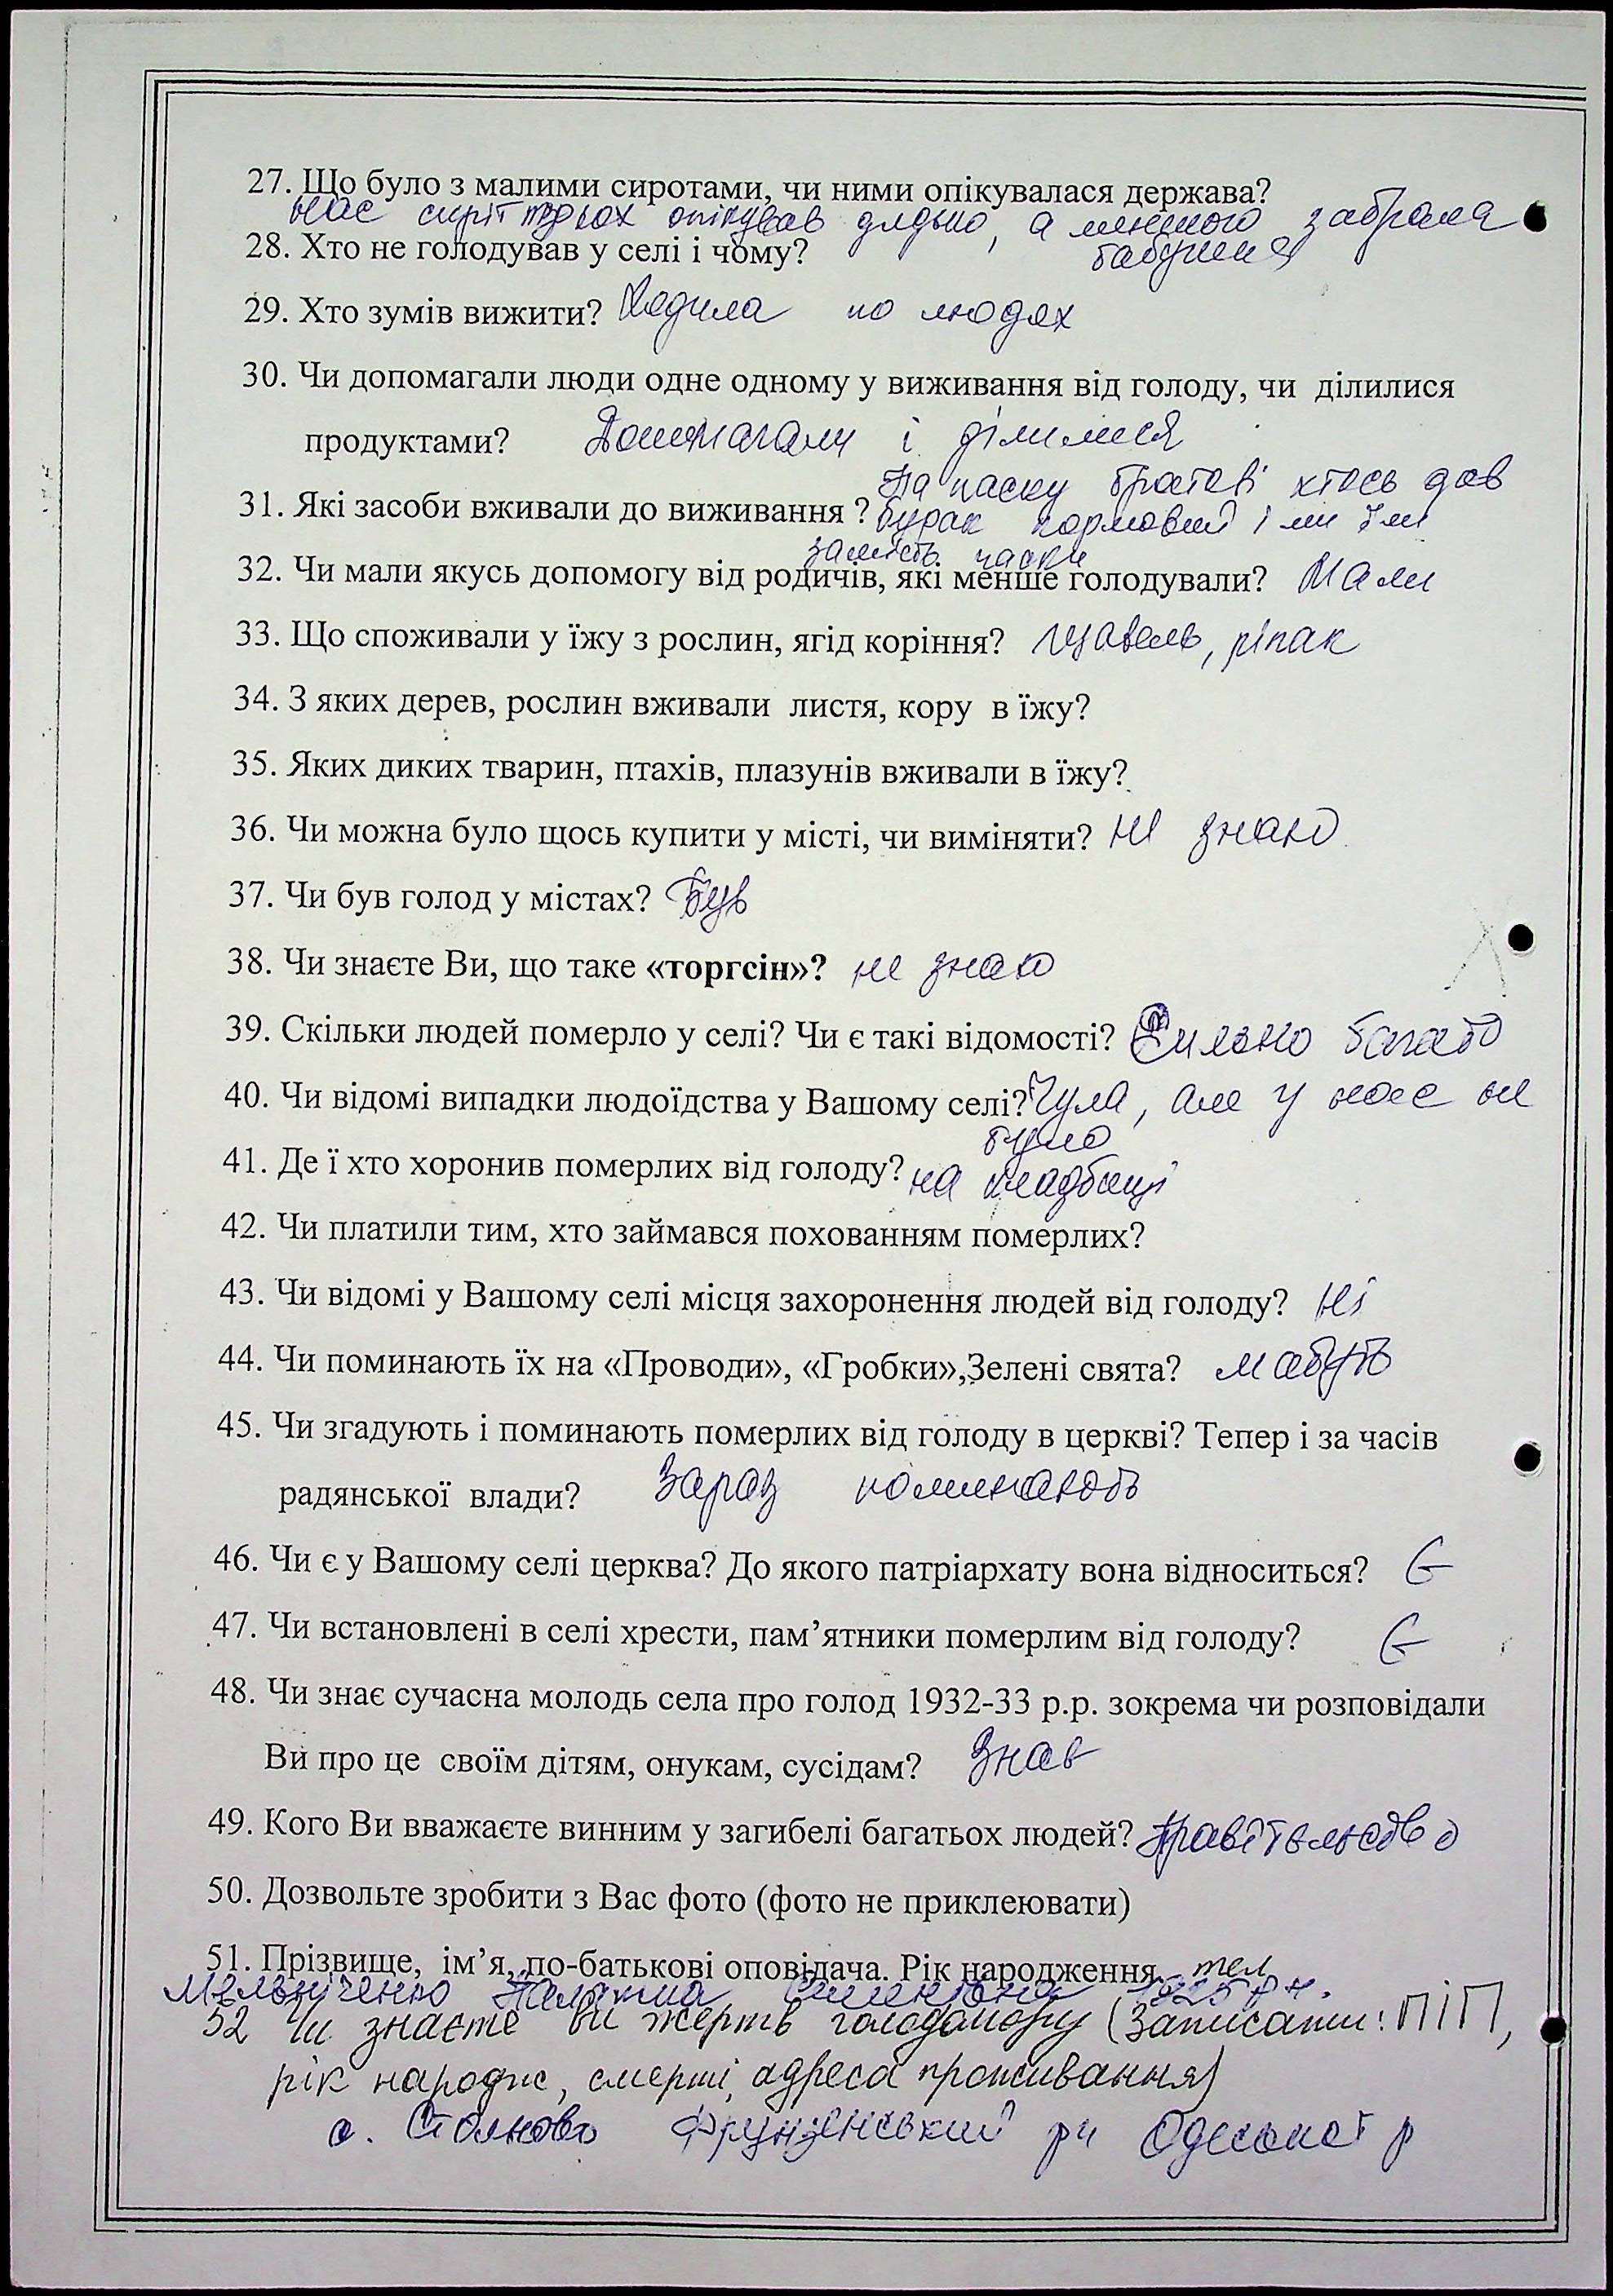 27. Що було з малими сиротами, чи ними опікувалася держава?
нас сиріт трьох опікував дядько, а меншого забрала
бабушка
28. Хто не голодував у селі і чому?
29. Хто зумів вижити? Ходила по людях
30. Чи допомагали люди одне одному у виживання від голоду, чи ділилися
продуктами? Допомагали і ділилися
На паску братові хтось дав
31. Які засоби вживали до виживання ? бурак кормовий і ми їли
замість паски
32. Чи мали якусь допомогу від родичів, які менше голодували? Мали
33. Що споживали у їжу з рослин, ягід коріння? щавель, ріпак
34. З яких дерев, рослин вживали листя, кору в їжу?
35. Яких диких тварин, птахів, плазунів вживали в їжу?
36. Чи можна було щось купити у місті, чи виміняти? не знаю
37. Чи був голод у містах? Був
38. Чи знаєте Ви, що таке «торгсін»? не знаю
39. Скільки людей померло у селі? Чи є такі відомості? Сильно багато
40. Чи відомі випадки людоїдства у Вашому селі? Чула, але у нас не
було
41. Де ї хто хоронив померлих від голоду? на кладбищі
42. Чи платили тим, хто займався похованням померлих?
43. Чи відомі у Вашому селі місця захоронення людей від голоду? Ні
44. Чи поминають їх на «Проводи», «Гробки»,Зелені свята? мабуть
45. Чи згадують і поминають померлих від голоду в церкві? Тепер і за часів
радянської влади? Зараз поминають
46. Чи є у Вашому селі церква? До якого патріархату вона відноситься? Є
47. Чи встановлені в селі хрести, пам’ятники померлим від голоду? Є
48. Чи знає сучасна молодь села про голод 1932-33 р.р. зокрема чи розповідали
Ви про це своїм дітям, онукам, сусідам? Знає
49. Кого Ви вважаєте винним у загибелі багатьох людей? Правітельство
50. Дозвольте зробити з Вас фото (фото не приклеювати)
51. Прізвище, ім’я, по-батькові оповідача. Рік народження, тел
Мельніченко 1925 р н.
52 Чи знаєте ви жертв голодомору (Записати: ПІП,
рік народж, смерті, адреса проживання)
с. Фрунзенський рн Одеської